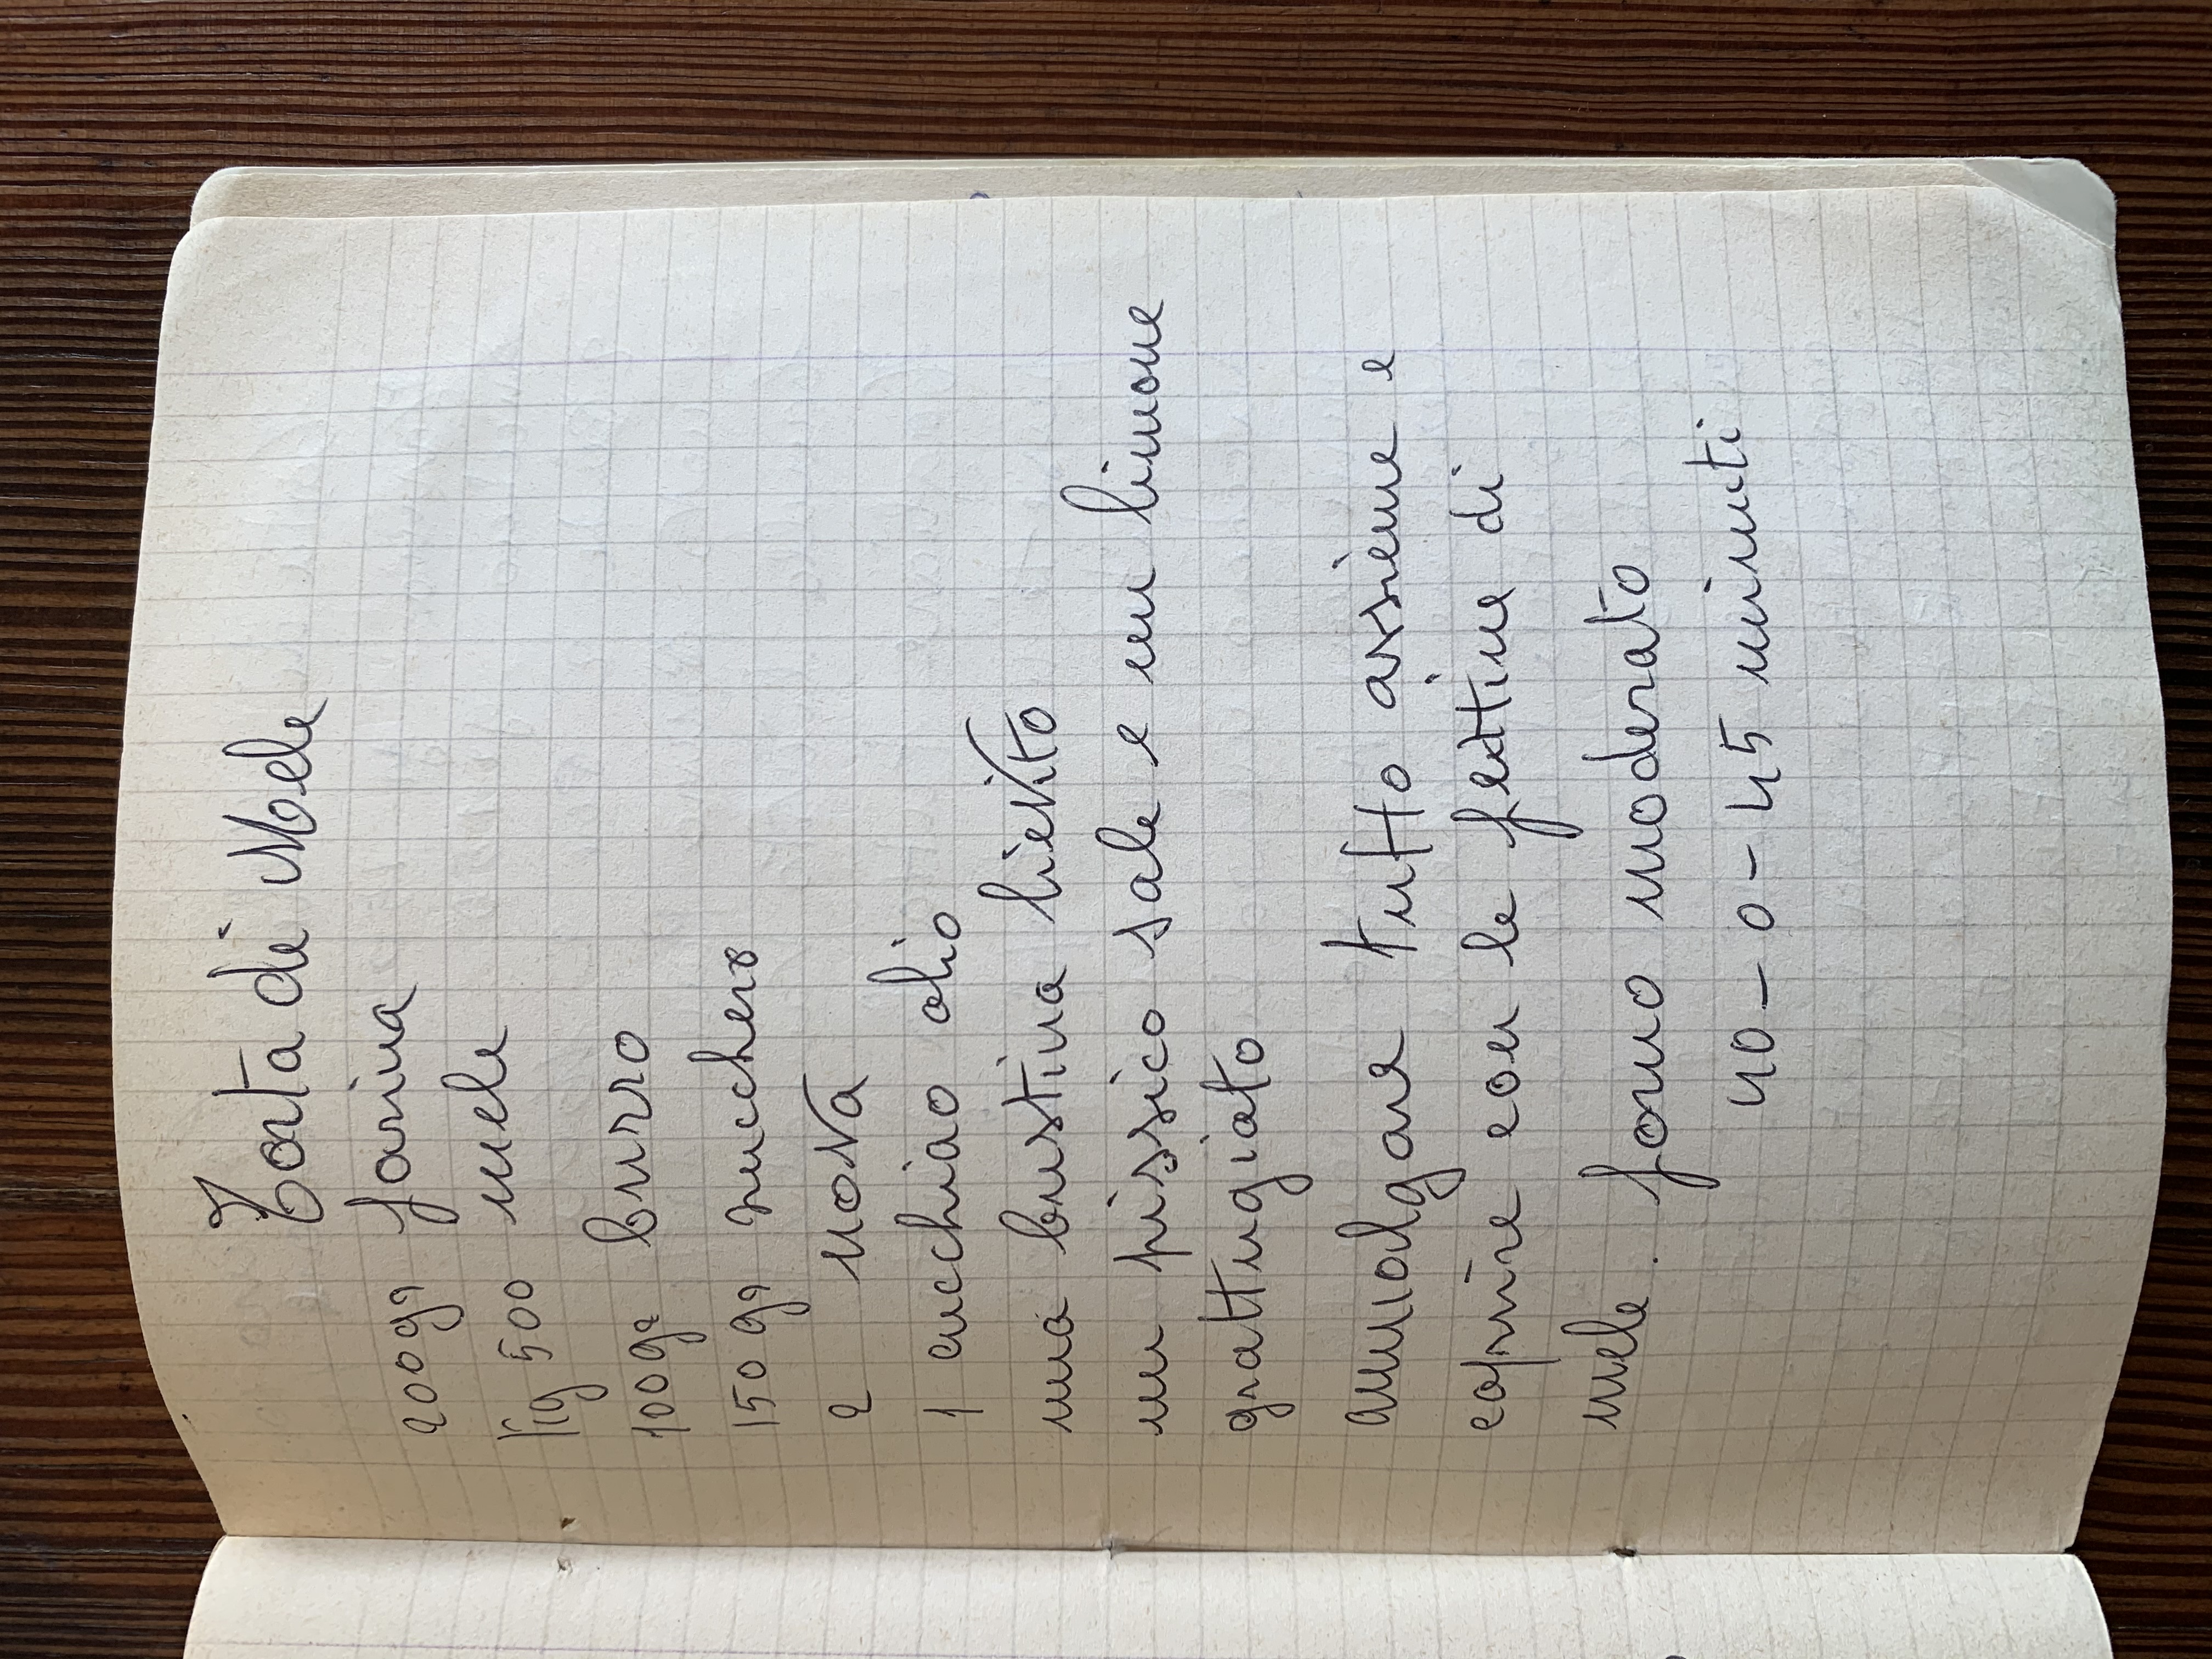 Torta di Mele
200gr farina
Kg 500 mele
100gr burro
150 gr zucchero
2 uova
1 cucchiao olio
una bustina lievito
un pissico sale e un limone
grattugiato
ammalgare tutto assieme e
coprire con le fettine di
mele. forno moderato
40 - 0 - 45 minuti